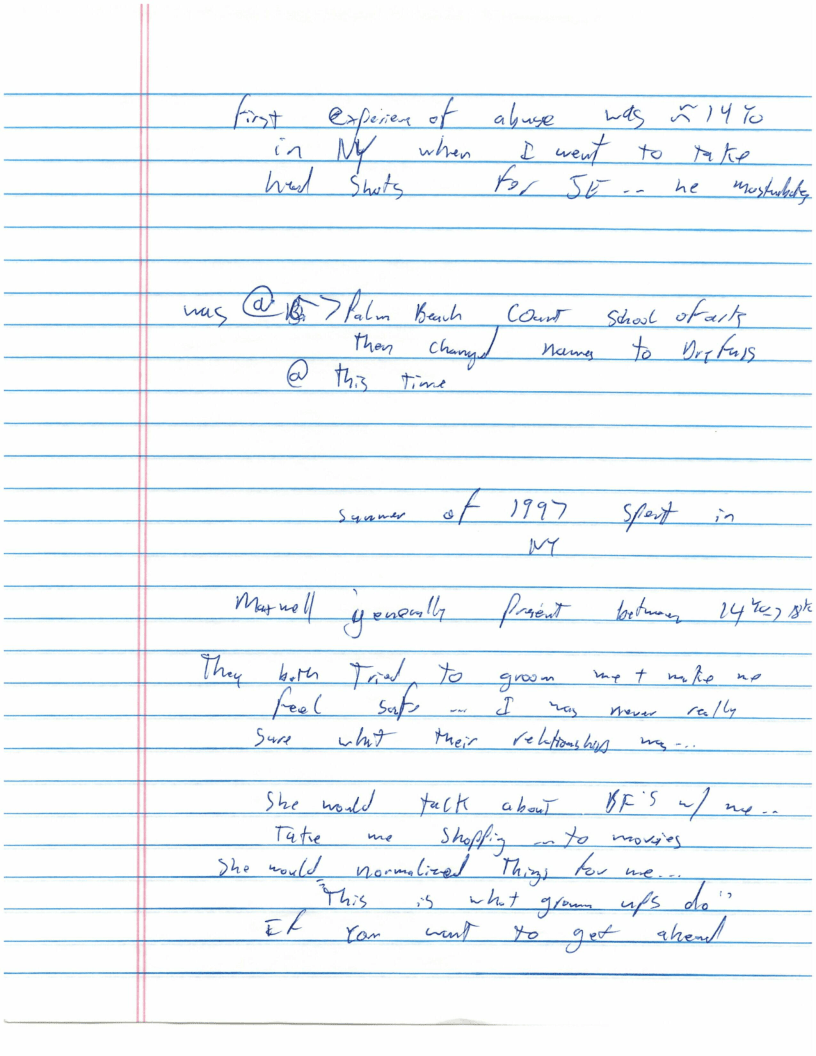 first experience of abuse was ≈ 14 Yo
in NY when I went to take
head shots for JE -- he masturbates
was @ > Palm Beach Count School of arts
then changed names to Dryfuss
@ this time
summer of 1997 spent in
NY
Maxwell generally present between 14 Yo -> 18 Yo
They both Tried to groom me + make me
feel safe --- I was never really
sure what their relationships was ---
She would talk about BF'S w/ me --
Take me Shopping --- to movies
She would normalized Things for me ---
"This is what grown ups do"
If You want to get ahead